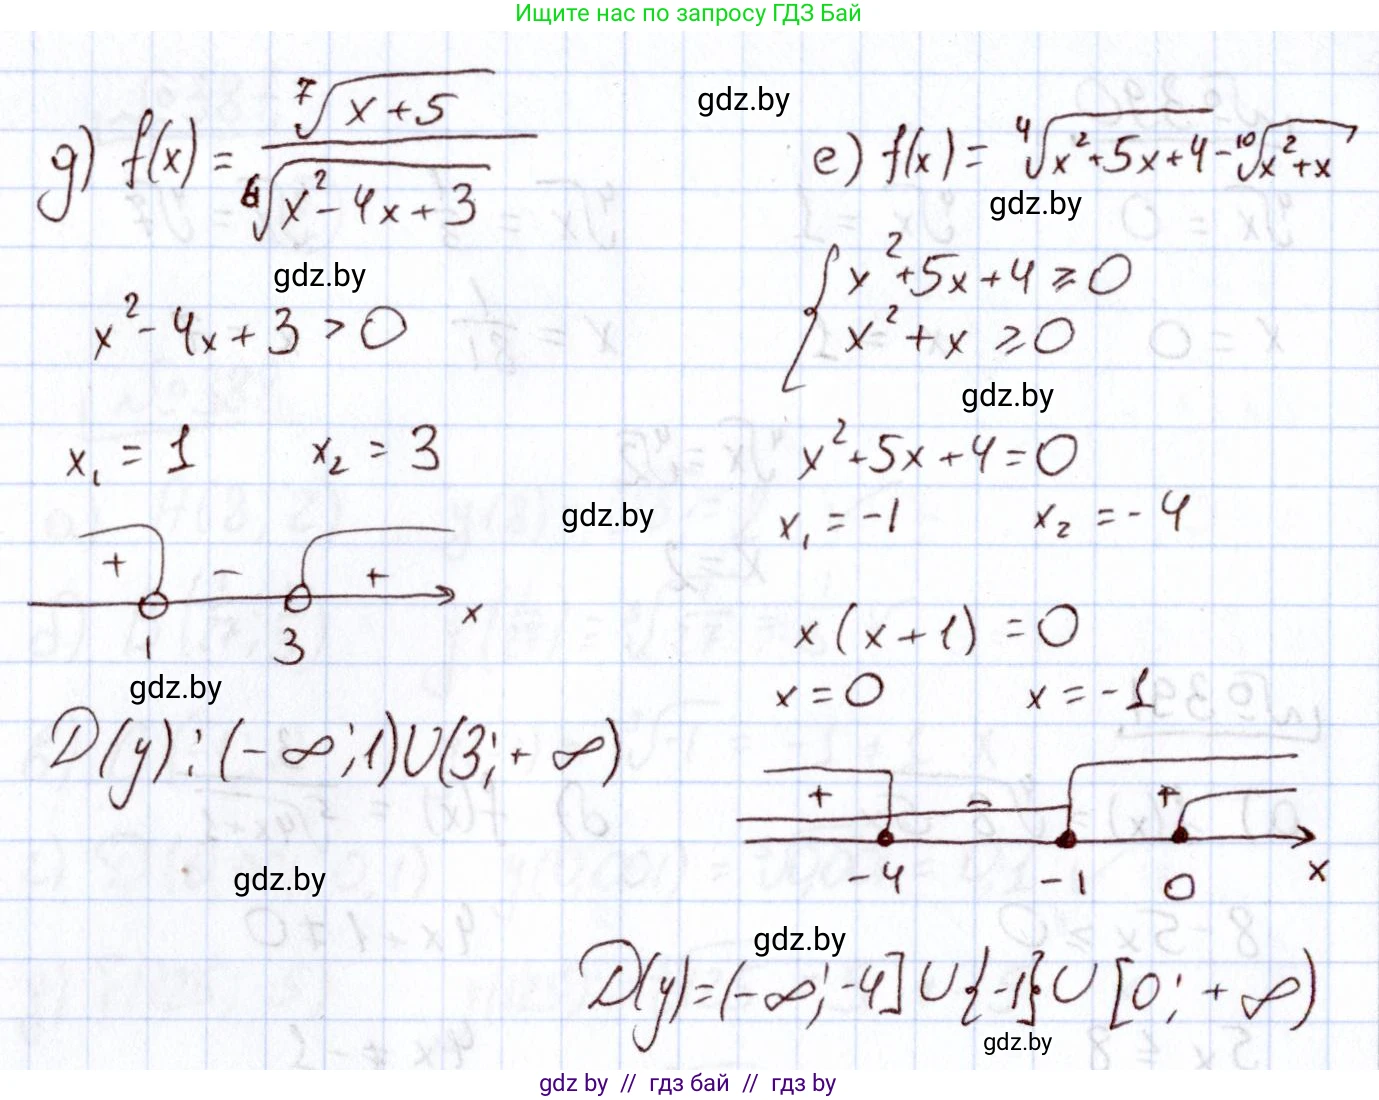 Ищите нас по запросу ГДЗ Бай
д) f(x) = ⁷√(x+5) / ⁶√(x²-4x+3)
gdz.by
x²-4x+3 > 0
x₁ = 1 x₂ = 3
+ - +
1 3 x
gdz.by
D(y): (-∞; 1)∪(3; +∞)
gdz.by
gdz.by
gdz.by
е) f(x) = ⁴√(x²+5x+4) - ¹⁰√(x²+x)
gdz.by
{ x²+5x+4 ≥ 0
x²+x ≥ 0
gdz.by
x²+5x+4=0
x₁ = -1 x₂ = -4
x(x+1) = 0
x = 0 x = -1
+ - +
-4 -1 0 x
gdz.by
D(y)=(-∞; -4]∪{-1}∪[0; +∞)
gdz.by
gdz by // гдз бай // гдз by